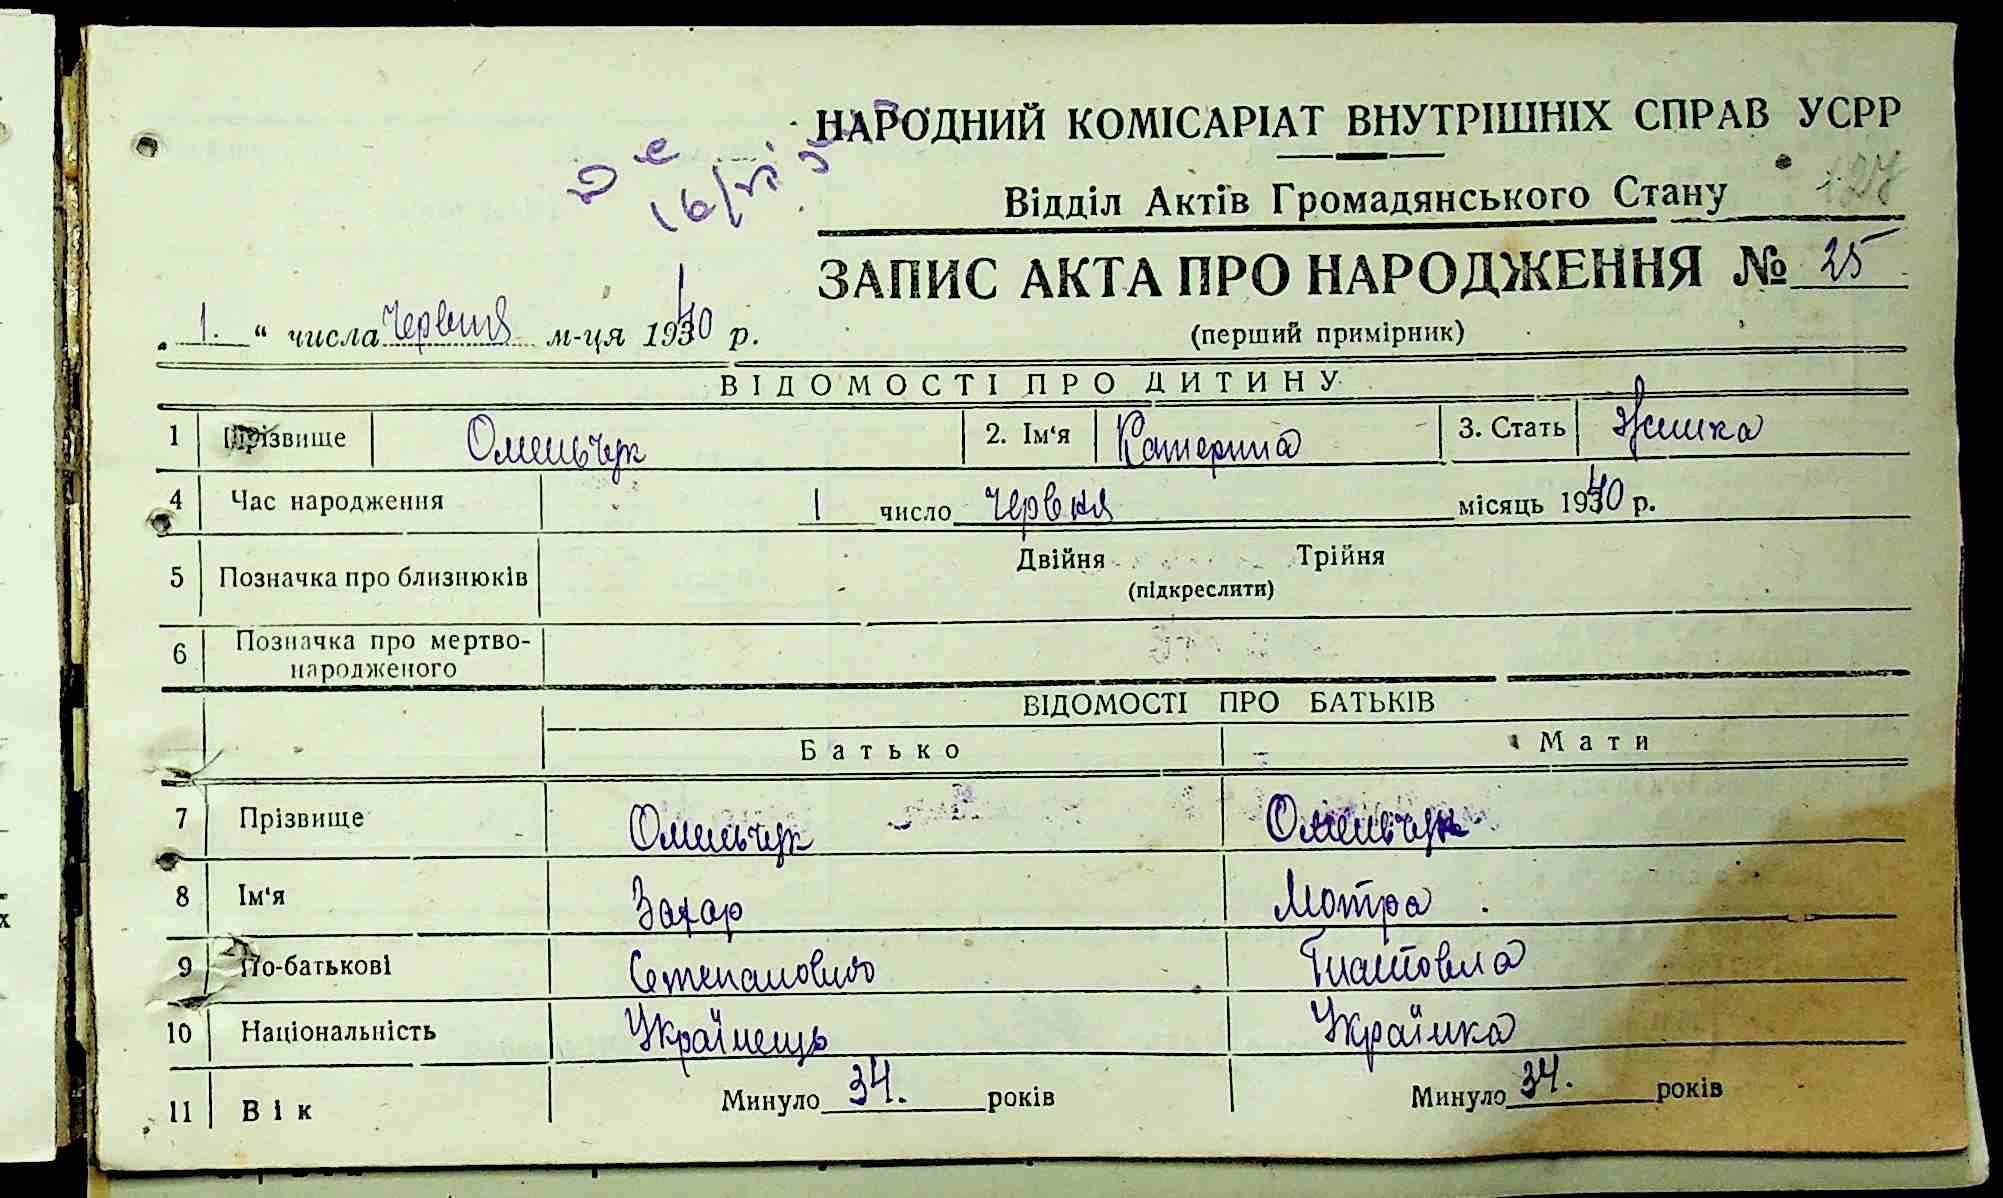 НАРОДНИЙ КОМІСАРІАТ ВНУТРІШНІХ СПРАВ УСРР
16/VI
Відділ Актів Громадянського Стану 127
ЗАПИС АКТА ПРО НАРОДЖЕННЯ № 25
„ 1. “ числа Червня м-ця 1940 р. (перший примірник)
ВІДОМОСТІ ПРО ДИТИНУ
1 Прізвище Омельчук 2. Ім‘я Катерина 3. Стать Жінка
4 Час народження 1 число Червня місяць 1940 р.
5 Позначка про близнюків Двійня Трійня
(підкреслити)
6 Позначка про мертво-
народженого
ВІДОМОСТІ ПРО БАТЬКІВ
Батько Мати
7 Прізвище Омельчук Омельчук
8 Ім‘я Захар Мотра
9 По-батькові Степанович
10 Національність Українець Українка
11 Вік Минуло 34. років Минуло 34. років